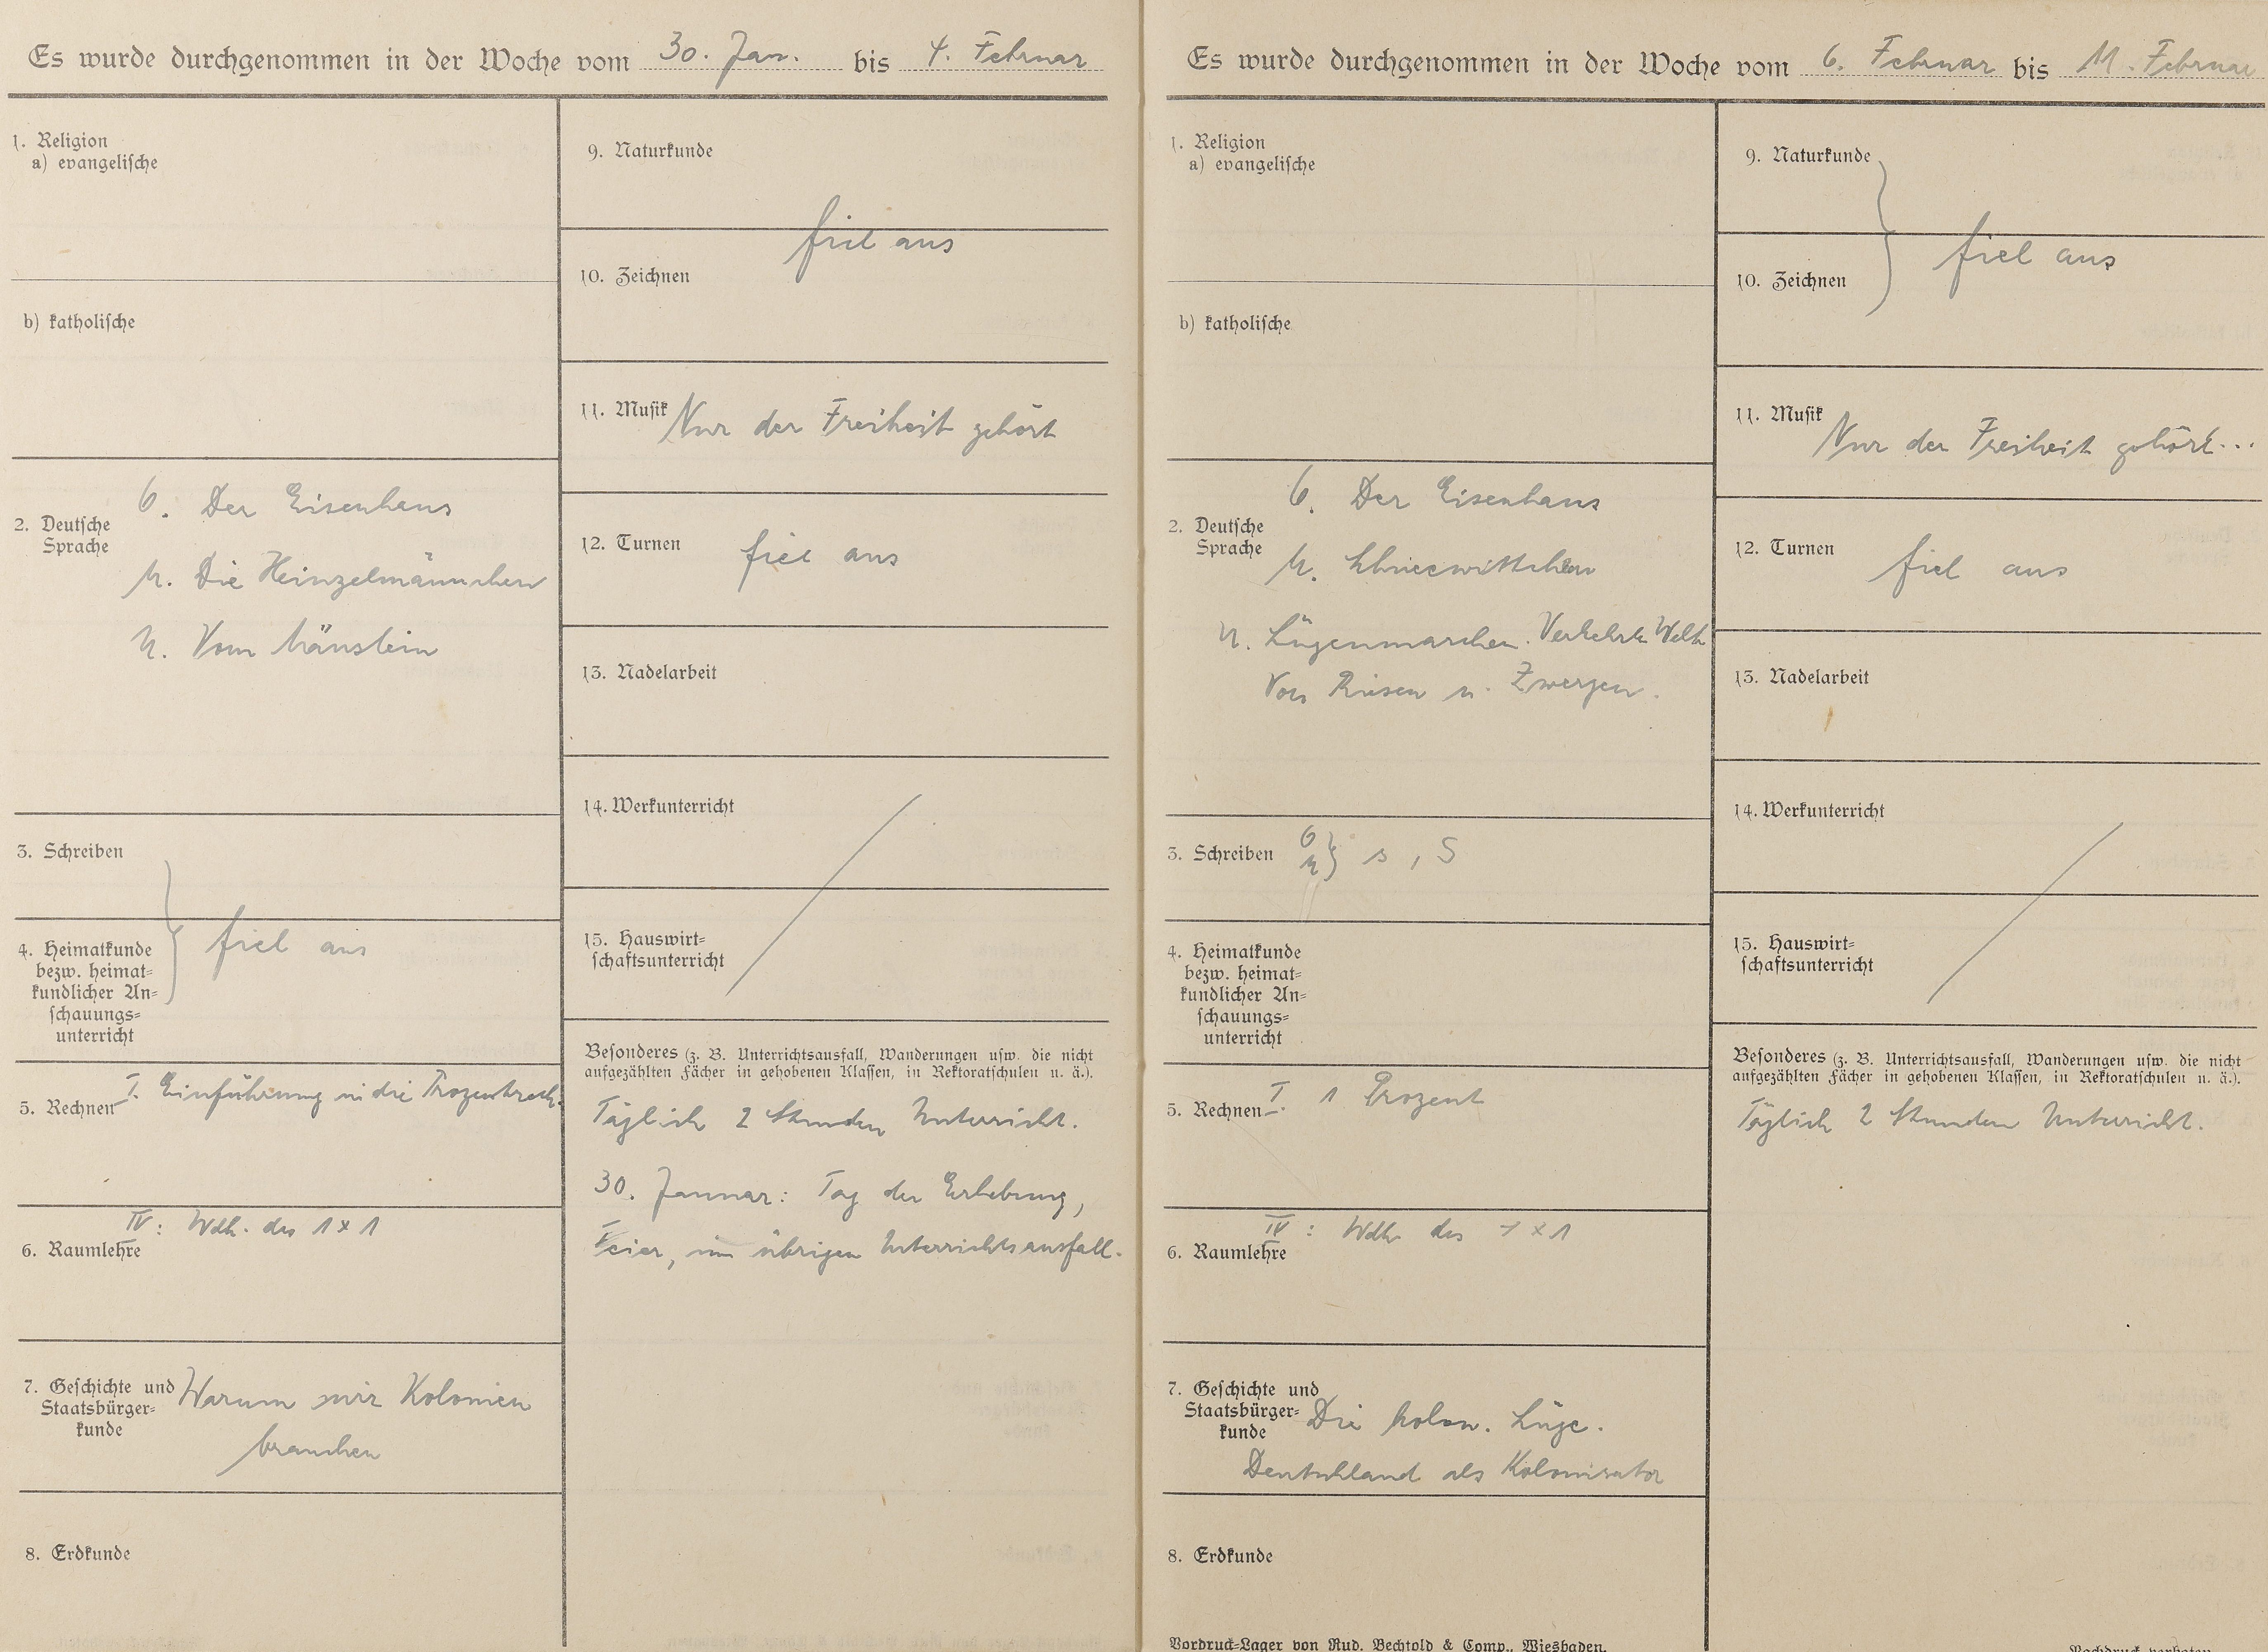 Es wurde durchgenommen in der Woche vom 30. Jan. bis 4. Februar
1. Religion
a) evangelische
b) katholische
2. Deutsche
Sprache
O. Der Eisenhans
M. Die Heinzelmännchen
U. Vom Mäuslein
3. Schreiben
4. Heimatkunde
bezw. heimat=
kundlicher An=
schauungs=
unterricht
fiel aus
5. Rechnen I. Einführung in die Prozentrech.
IV: Wdh. des 1x1
6. Raumlehre
7. Geschichte und
Staatsbürger=
kunde
Warum wir Kolonien
brauchen
8. Erdkunde
9. Naturkunde
fiel aus
10. Zeichnen
11. Musik Nur der Freiheit gehört
12. Turnen fiel aus
13. Nadelarbeit
14. Werkunterricht
15. Hauswirt=
schaftsunterricht
Besonderes (z. B. Unterrichtsausfall, Wanderungen usw. die nicht
aufgezählten Fächer in gehobenen Klassen, in Rektoratschulen u. ä.).
Täglich 2 Stunden Unterricht.
30. Januar: Tag der Erhebung,
Feier, im übrigen Unterrichtsausfall.
Es wurde durchgenommen in der Woche vom 6. Februar bis 11. Februar
1. Religion
a) evangelische
b) katholische
2. Deutsche
Sprache
O. Der Eisenhans
M. Schneewittchen
U. Lügenmärchen. Verkehrte Welt
Von Riesen u. Zwergen.
3. Schreiben O M } s, S
4. Heimatkunde
bezw. heimat=
kundlicher An=
schauungs=
unterricht
5. Rechnen I. 1 Prozent
IV: Wdh. des 1x1
6. Raumlehre
7. Geschichte und
Staatsbürger=
kunde
Die kolon. Lüge.
Deutschland als Kolonisator
8. Erdkunde
Vordruck=Lager von Rud. Bechtold & Comp., Wiesbaden.
9. Naturkunde
10. Zeichnen
fiel aus
11. Musik Nur der Freiheit gehört...
12. Turnen fiel aus
13. Nadelarbeit
14. Werkunterricht
15. Hauswirt=
schaftsunterricht
Besonderes (z. B. Unterrichtsausfall, Wanderungen usw. die nicht
aufgezählten Fächer in gehobenen Klassen, in Rektoratschulen u. ä.).
Täglich 2 Stunden Unterricht.
Nachdruck verboten